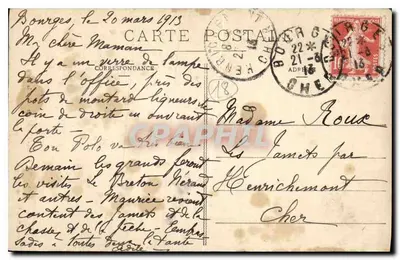 Bourges, le 20 mars 1913
Ma chère Maman
Il y a un verre de lampe
dans l'office, près des
pots de moutard ligneurs le
coin de droite en ouvrant
la porte -
Ton Polo va très bien
Demain les grands feront
les visites. Le Breton, Méraud
et autres - Maurice revient
content des Jamets et de la
chasse et de la pêche -
à toutes deux. Ta tante
CARTE POSTALE
CORRESPONDANCE
BOURGES
22 *
21 - 3
13
CHER
(18)
Madame Roux
Les Jamets par
Henrichemont
Cher